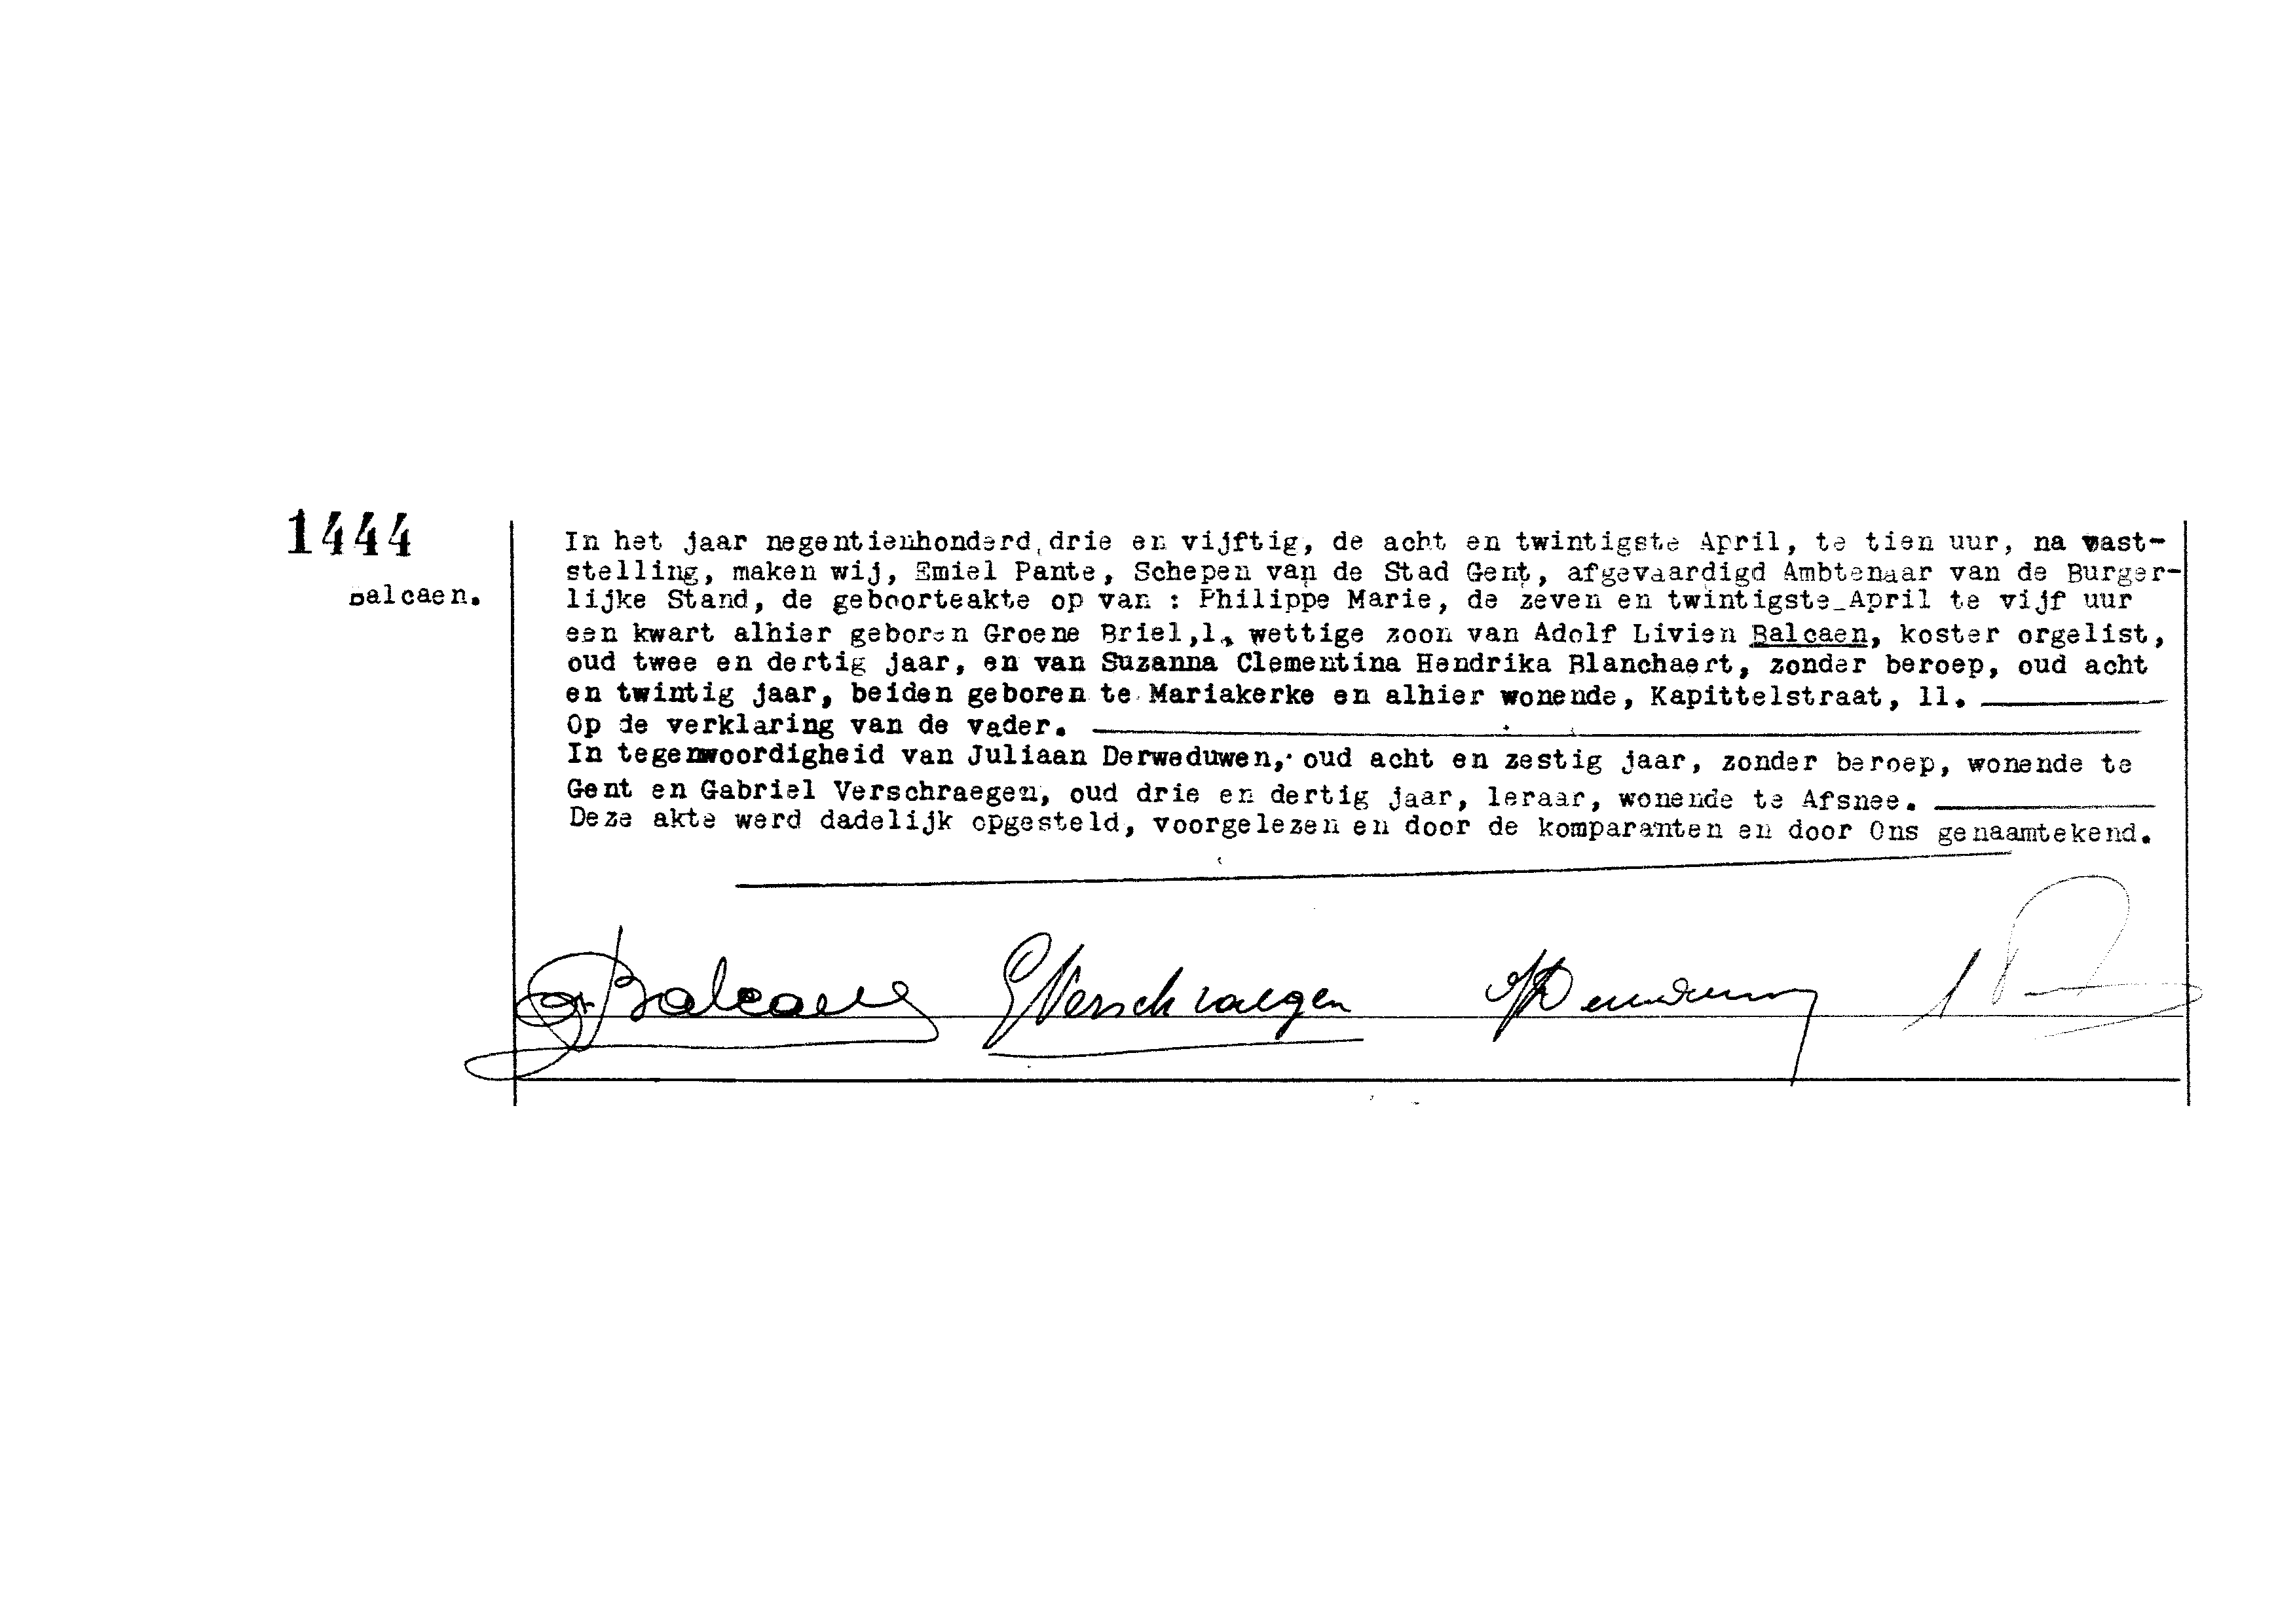 1444
Balcaen.
In het jaar negentienhonderd drie en vijftig, de acht en twintigste April, te tien uur, na vast-
stelling, maken wij, Emiel Pante, Schepen van de Stad Gent, afgevaardigd Ambtenaar van de Burger-
lijke Stand, de geboorteakte op van : Philippe Marie, de zeven en twintigste April te vijf uur
een kwart alhier geboren Groene Briel,1, wettige zoon van Adolf Livien Balcaen, koster orgelist,
oud twee en dertig jaar, en van Suzanna Clementina Hendrika Blanchaert, zonder beroep, oud acht
en twintig jaar, beiden geboren te Mariakerke en alhier wonende, Kapittelstraat, 11.
Op de verklaring van de vader.
In tegenwoordigheid van Juliaan Derweduwen, oud acht en zestig jaar, zonder beroep, wonende te
Gent en Gabriel Verschraegen, oud drie en dertig jaar, leraar, wonende te Afsnee.
Deze akte werd dadelijk opgesteld, voorgelezen en door de komparanten en door Ons genaamtekend.
Balcaen GVerschraegen